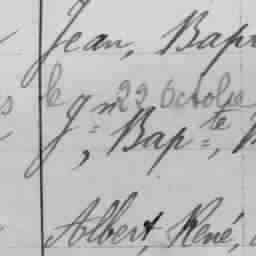 Jean, Bap
le 22 Octobre
Jn=, Bap=te,
Albert, René,